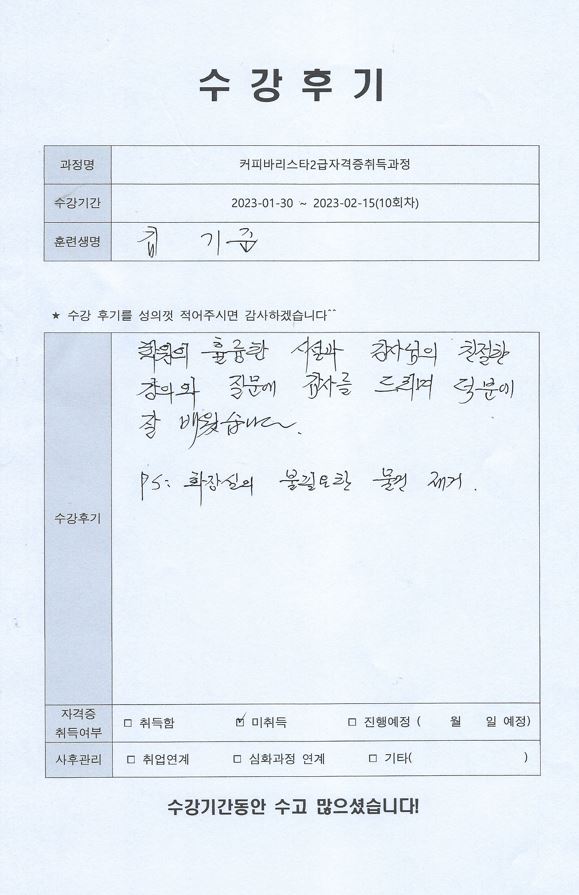 수강후기
과정명 커피바리스타2급자격증취득과정
수강기간 2023-01-30 ~ 2023-02-15(10회차)
훈련생명 김 기준
★ 수강 후기를 성의껏 적어주시면 감사하겠습니다^^
수강후기
학원의 훌륭한 시설과 강사님의 친절한
강의와 질문에 감사를 드리며 덕분에
잘 배웠습니다.
PS: 화장실의 불필요한 물건 제거.
자격증
취득여부
□ 취득함 ☑ 미취득 □ 진행예정 ( 월 일 예정)
사후관리 □ 취업연계 □ 심화과정 연계 □ 기타( )
수강기간동안 수고 많으셨습니다!